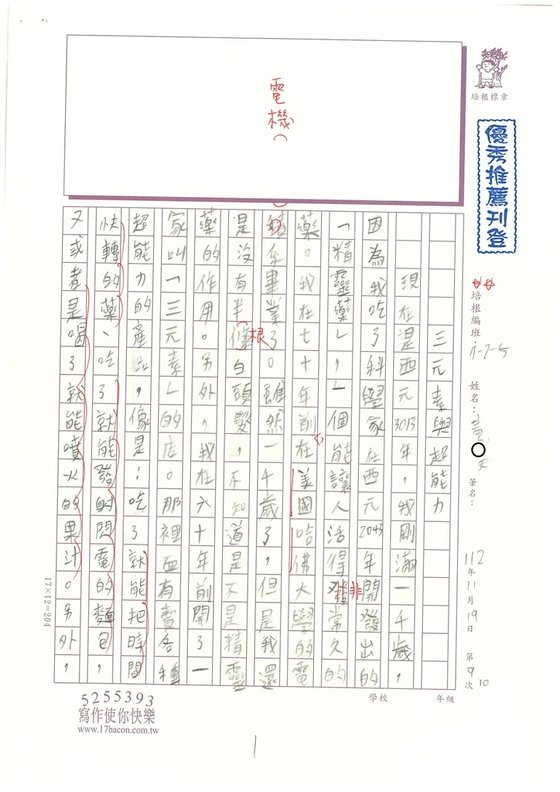 電機
培根標章
優秀推薦刊登
培根編班
姓名:
筆名:
112年11月19日 第9次
三元素與超能力
現在是西元3013年,我剛滿一千歲,
因為我吃了科學家在西元2043年開發出的
「精靈藥」,一個能讓人活得非常久的
藥。我在七十年前在美國哈佛大學的電
機系畢業了。雖然一千歲了,但是我還
是沒有半根白頭髮,不知道是不是精靈
藥的作用。另外,我在六十年前開了一
家叫「三元素」的店。那裡面有當各種
超能力的產品,像是:吃了就能把時間
快轉的藥、吃了就能發射閃電的麵包
又或者是喝了就能噴火的果汁。另外,
17×12=204
年級
學校
5255393
寫作使你快樂
www.17bacon.com.tw
1